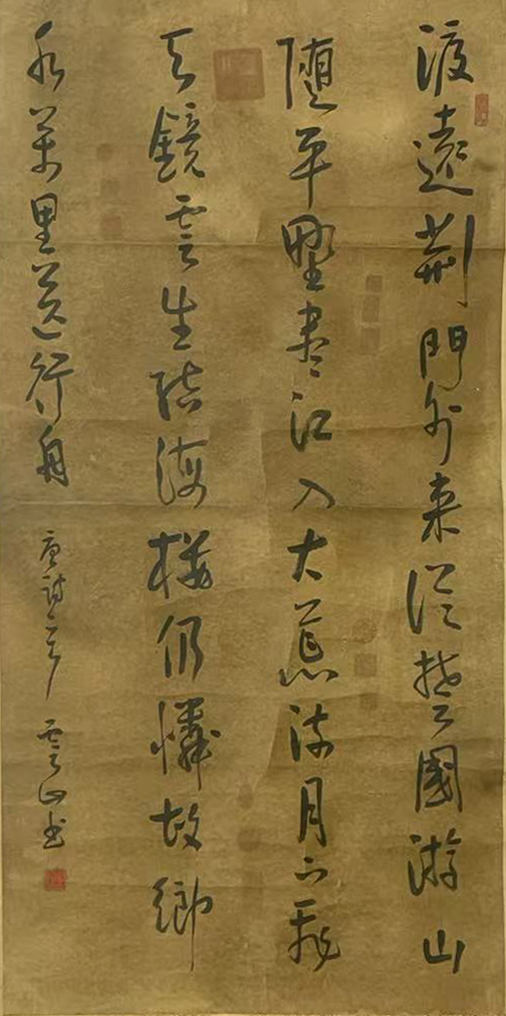 渡遠荆門外来從楚國游山
隨平野盡江入大荒流月下飛
天鏡雲生結海樓仍憐故鄉
水萬里送行舟
唐詩一首 雲山书